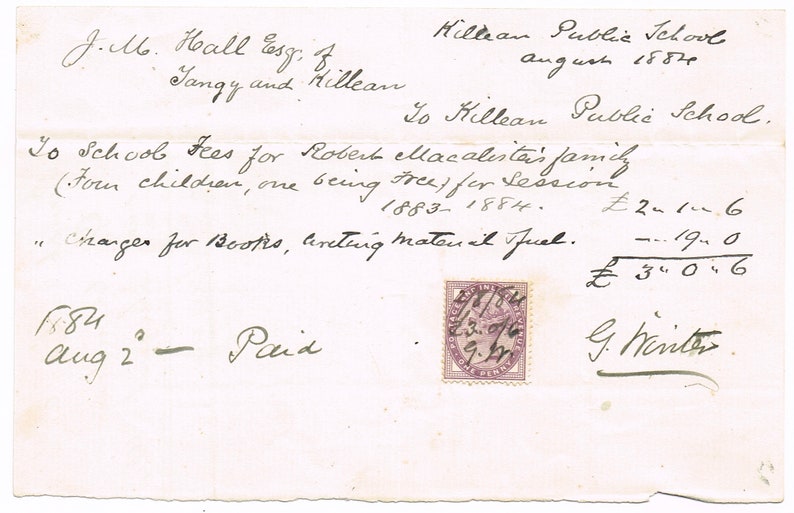 Killean Public School
August 1884
J. M. Hall Esq. of
Tangy and Killean
To Killean Public School.
To School Fees for Robert Macalister's family
(Four children, one being Free) for Session
1883-1884. £2 " 1 " 6
" Charges for Books, writing material & fuel. — 19 " 0
£ 3 " 0 " 6
1884
Aug 2d — Paid
POSTAGE AND INLAND REVENUE
ONE PENNY
2/8/84
£3.0/6
G. W.
G. Winter